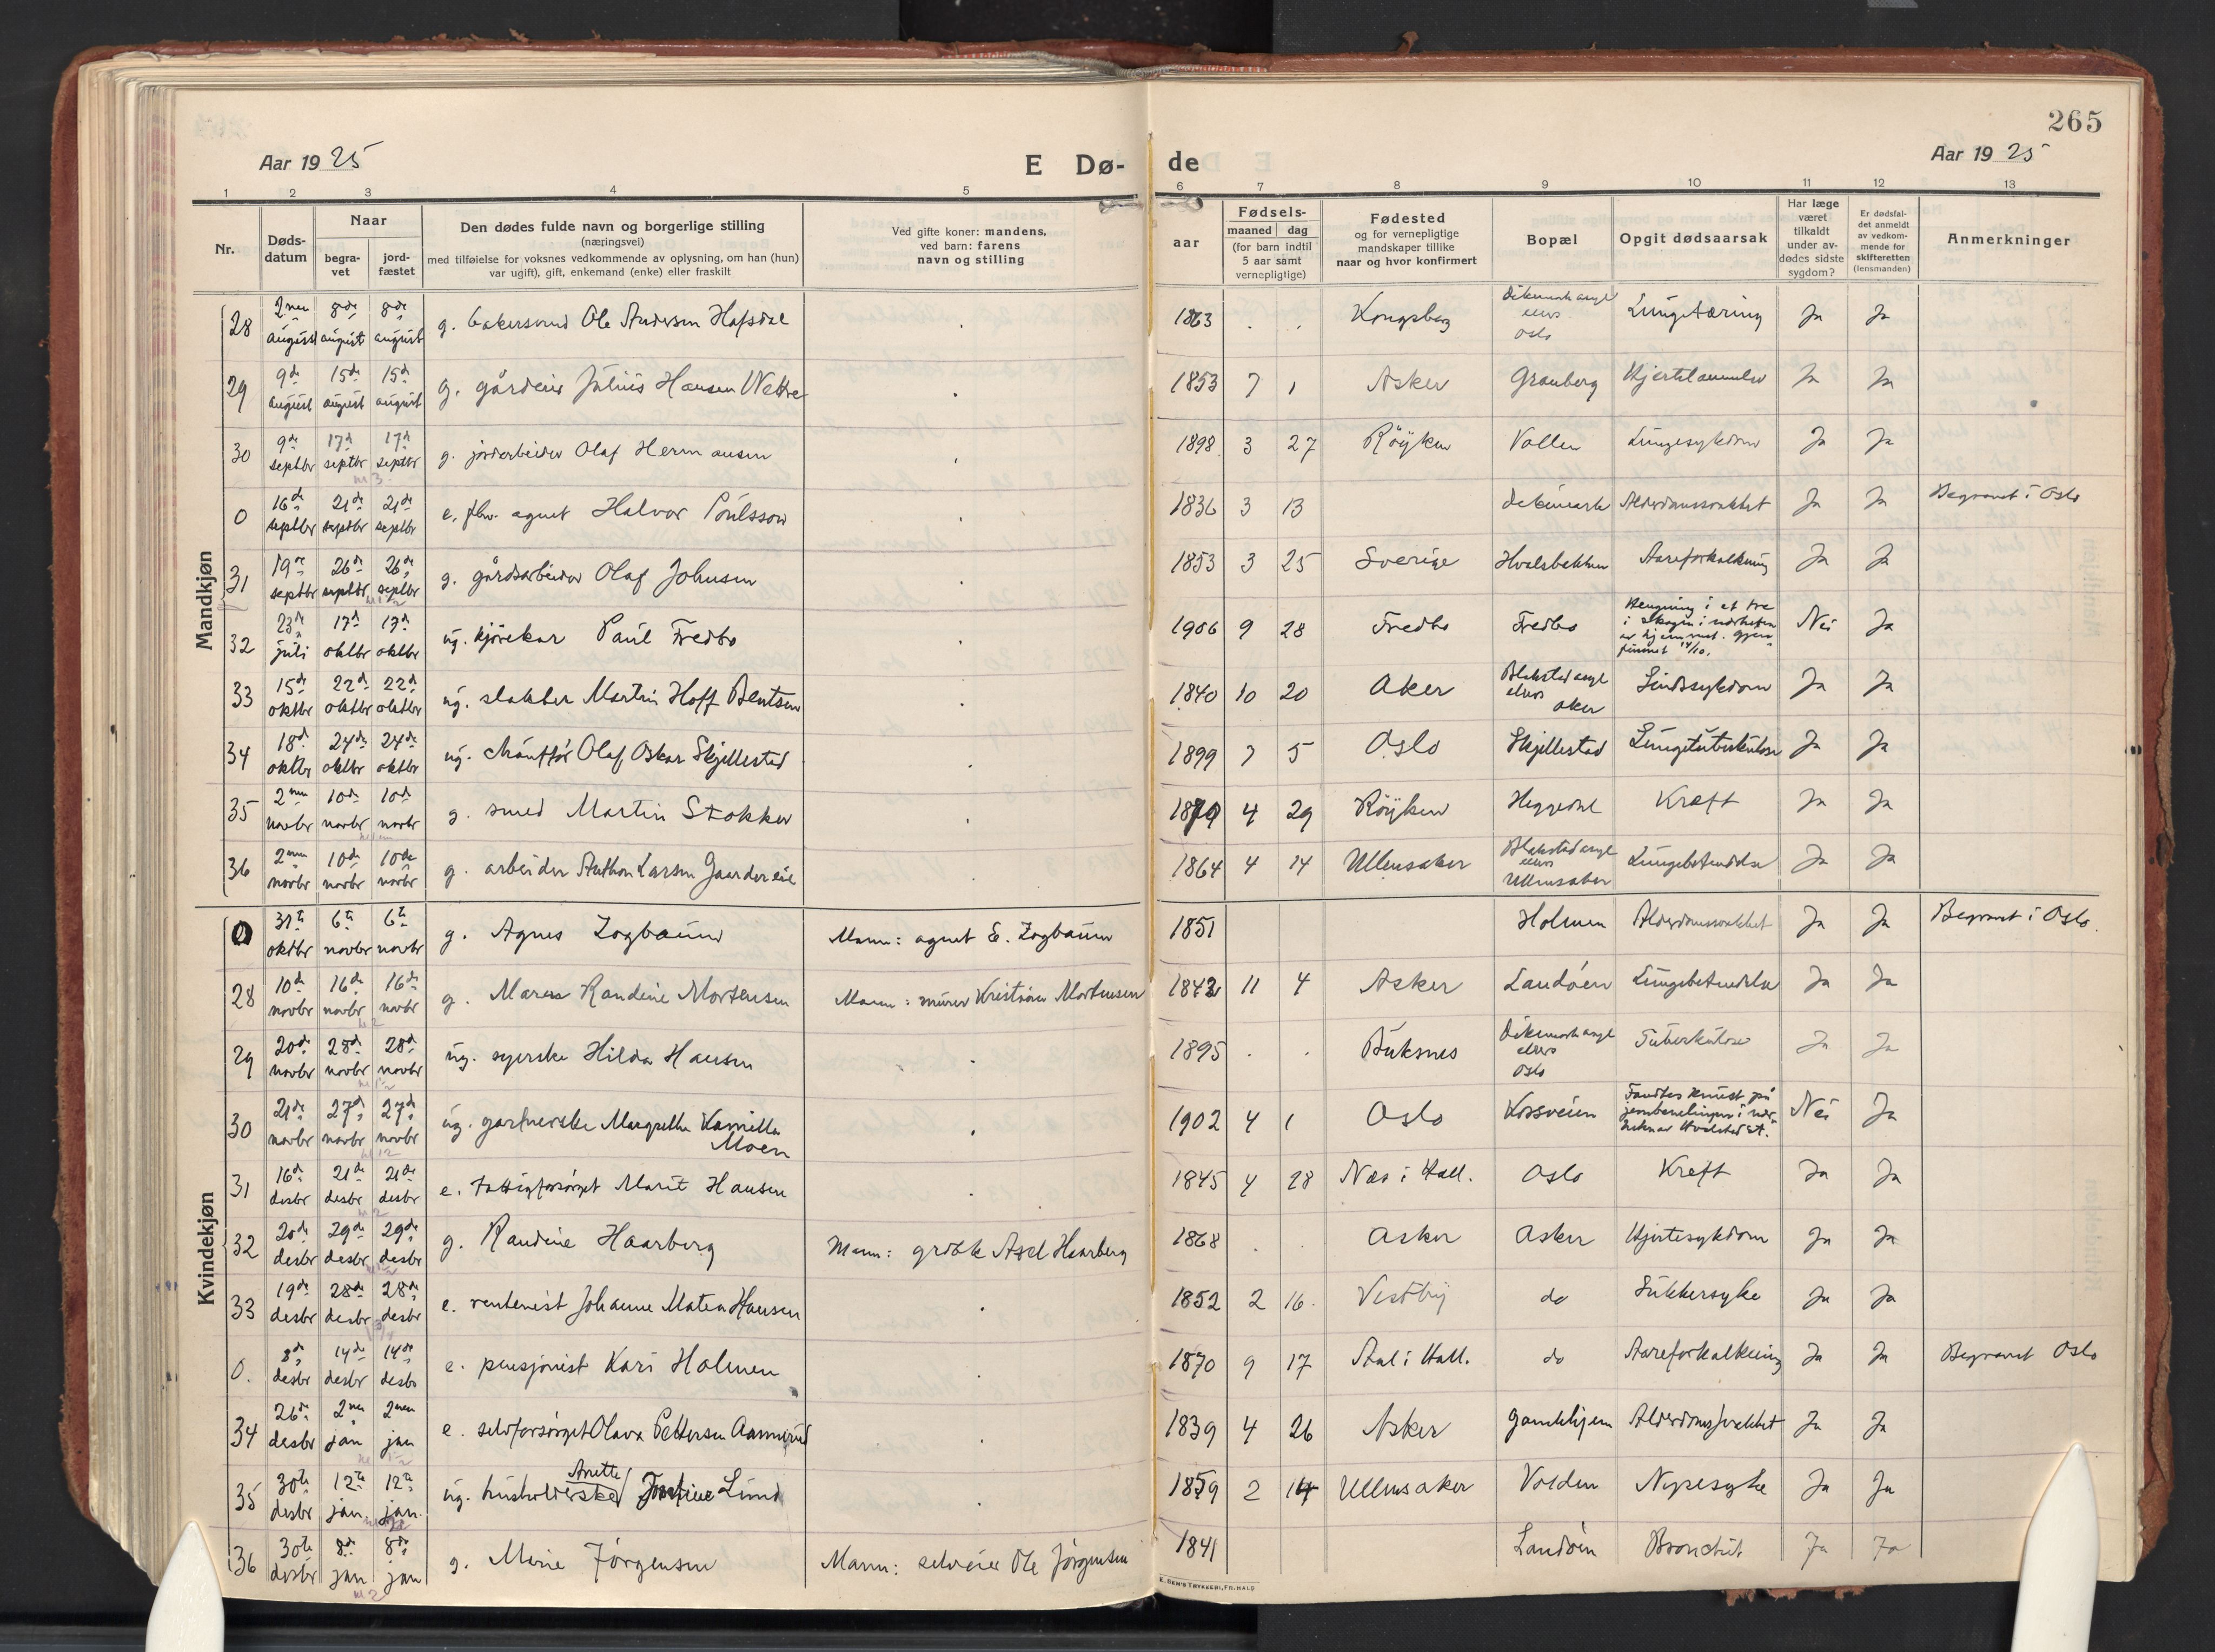 265
Aar 1925
E Dø-
de
Aar 1925
1 2 3 4 5 6 7 8 9 10 11 12 13
Nr.
Døds-
datum
Naar
begra-
vet
jord-
fæstet
Den dødes fulde navn og borgerlige stilling
(næringsvei)
med tilføielse for voksnes vedkommende av oplysning, om han (hun)
var ugift), gift, enkemand (enke) eller fraskilt
Ved gifte koner: mandens,
ved barn: farens
navn og stilling
aar
Fødsels-
maaned dag
(for barn indtil
5 aar samt
vernepligtige)
Fødested
og for vernepligtige
mandskaper tillike
naar og hvor konfirmert
Bopæl
Opgit dødsaarsak
Har læge
været
tilkaldt
under av-
dødes sidste
sygdom?
Er dødsfal-
det anmeldt
av vedkom-
mende for
skifteretten
(lensmanden)
Anmerkninger
Mandkjøn
28 2nen august 8de august 8de august g. Ole Andersen Hafsdal 1863 Kongsberg Dikemark asyl ellers Oslo Lungetæring Ja Ja
29 9de august 15de august 15de august g. Julius Hansen Nettre 1853 7 1 Asker Granberg Hjertelammelse Ja Ja
30 9de septbr 17de septbr 17de septbr g. jordarbeider Olaf Hermansen 1898 3 27 Røyken Vollen Lungesykdom Ja Ja
0 16de septbr 21de septbr 21de septbr e. fhv. agent Halvor Poulsson 1836 3 13 Alderdomssvakhet Ja Ja Begravet i Oslo
31 19de septbr 26de septbr 26de septbr g. gårdsarbeider Olaf Johnsen 1853 3 25 Sverige Hvalsbakken Aareforkalkning Ja Ja
32 23de juli 17de oktbr 17de oktbr ug. kjørekar Paul Fredbo 1906 9 28 Fredbo Fredbo Hengning i et tre i skogen i nærheten av hjemmet. Gjenfunnet 14/10. Nei Ja
33 15de oktbr 22de oktbr 22de oktbr ug. slakter Martin Hoff Bentsen 1840 10 20 Aker Blakstad asyl ellers Aker Sindssykdom Ja Ja
34 18de oktbr 24de oktbr 24de oktbr ug. chauffør Olaf Oskar Skjellestad 1899 7 5 Oslo Skjellestad Lungetuberkulose Ja Ja
35 2nen novbr 10de novbr 10de novbr g. smed Martin Stokker 4 29 Røyken Heggedal Kræft Ja Ja
36 2nen novbr 10de novbr 10de novbr g. arbeider Anthon Larsen 1864 4 14 Ullensaker Blakstad asyl ellers Ullensaker Lungebetændelse Ja Ja
Kvindekjøn
0 31te oktbr 6te novbr 6te novbr g. Agnes Zogbaum Mann: agent E. Zogbaum 1851 Holmen Alderdomssvakhet Ja Ja Begravet i Oslo.
28 10de novbr 16de novbr 16de novbr g. Maren Randine Mortensen Mann: murer Kristian Mortensen 1843 11 4 Asker Landøen Lungebetændelse Ja Ja
29 20de novbr 28de novbr 28de novbr ug. syerske Hilda Hansen 1895 Buksnes Dikemark asyl ellers Oslo Tuberkulose Ja Ja
30 21de novbr 27de novbr 27de novbr ug. gartnerske Margrethe Kamilla Moen 1902 4 1 Oslo Korsveien Fandtes knust på jernbanelinjen i nærheten av Hvalstad st. Nei Ja
31 16de desbr 21de desbr 21de desbr e. fattigforsørget Marit Hansen 1845 4 28 Næs i Hall. Oslo Kræft Ja Ja
32 20de desbr 29de desbr 29de desbr g. Randine Haarberg Mann: Axel Haarberg 1868 Asker Asker Hjertesykdom Ja Ja
33 19de desbr 28de desbr 28de desbr e. rentenist Johanne Matea Hansen 1852 2 16. Vestby do Sukkersyke Ja Ja
0. 8de desbr 14de desbr 14de desbr e. pensjonist Kari Holmen 1870 9 17 Aal i Hall. do Aareforkalkning Ja Ja Begravet Oslo
34 26de desbr 2nen jan 2nen jan e. selvforsørget Olava Pettersen Aamerud 1839 4 26 Asker gamlehjem Alderdomssvakhet Ja Ja
35 30te desbr 12te jan 12te jan. ug. husholderske Anette Lund 1859 2 14 Ullensaker Volden Nyresyke Ja Ja
36 30te desbr 8de jan 8de jan g. Marie Jørgensen Mann: selveier Ole Jørgensen 1841 Landøen Bronchit Ja Ja
E. SEM'S TRYKKERI, FR.HALD